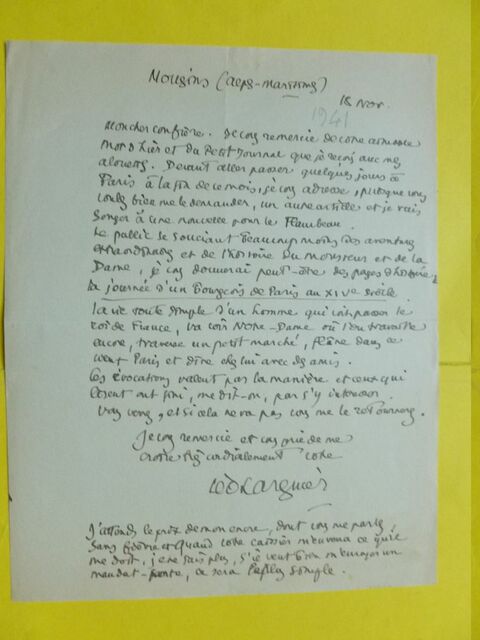 Mougins (Alpes-Maritimes)
18 Nov.
1941
Mon cher confrère. Je vous remercie de votre
mon d'hier et du Petit Journal que je reçois avec
Devant aller passer quelques jours à
Paris à la fin de ce mois, je vous adresse, puisque vous
voulez bien me le demander, un autre article et je vais
songer à une nouvelle pour le Flambeau.
Le public se souciant beaucoup moins des aventures
extraordinaires et de l'histoire du monsieur et de la
Dame, je vous donnerai peut-être des pages d'histoire
La journée d'un Bourgeois de Paris au XIVe siècle
La vie toute simple d'un homme qui voit passer le
roi de France, va voir Notre-Dame où l'on travaille
encore, traverse un petit marché, flâne dans ce
vieux Paris et dîne chez lui avec des amis.
Ces évocations valent par la manière et ceux qui
lisent ont fini, me dit-on, par s'y intéresser.
Vous verrez, et si cela ne va pas vous me le retournerez.
Je vous remercie et vous prie de me
croire très cordialement votre
Léo Larguier
J'attends le prix de mon encre, dont vous me parlez,
sans fièvre et quand votre caissier m'enverra ce qu'il
me doit, je ne sais plus, s'il veut bien m'envoyer un
mandat-carte, ce sera plus simple.